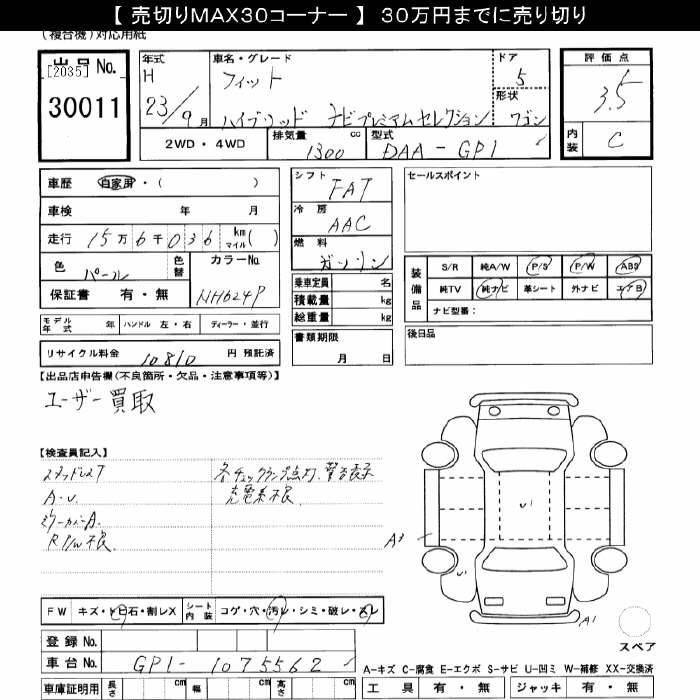 【 売切りMAX30コーナー 】 30万円までに売り切り
(複合機)対応用紙
出品 No.
[2035]
30011
年式
H
23/9月
車名・グレード
フィット
ハイブリッド ナビプレミアムセレクション
ドア
5
形状
ワゴン
評価点
3.5
内装
C
2WD・4WD
排気量
1300 cc
型式
DAA-GP1
車歴 自家用・( )
車検 年 月
走行 15万6千036 km マイル( )
色 パール
色替
カラーNo.
NH624P
保証書 有・無
シフト
FAT
冷房
AAC
燃料
ガソリン
乗車定員 名
積載量 kg
総重量 kg
書類期限
月 日
セールスポイント
装備品
S/R 純A/W P/S P/W ABS
純TV 純ナビ 革シート 外ナビ エアB
ナビ型番:
後日品
モデル年式 年 ハンドル 左・右 ディーラー・並行
リサイクル料金 10810 円 預託済
【出品店申告欄(不良箇所・欠品・注意事項等)】
ユーザー買取
【検査員記入】
スタッドレスT
A・U
ミラーカバーA
R P/W不良
各チェックランプ点灯、警告表示
充電系不良
U1
A3
U1
A1
スペア
FW キズ・トビ石・割レX
シート内装 コゲ・穴・汚レ・シミ・破レ・スレ
登録No.
車台No. GP1-1075562
車庫証明用 長さ cm 幅 cm 高さ cm
A-キズ C-腐食 E-エクボ S-サビ U-凹ミ W-補修 XX-交換済
工具 有・無 ジャッキ 有・無